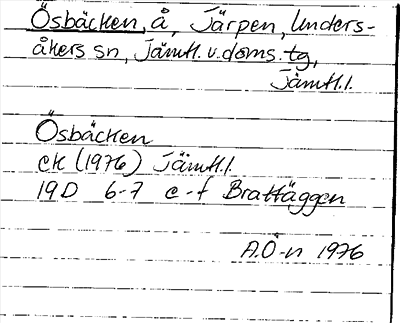 Ösbäcken, å, Järpen, Unders-
åkers sn, Jämtl. v. doms. tg,
Jämtl. l.
Ösbäcken
ek (1976) Jämtl. l.
19D 6-7 e-f Brattäggen
A.Ö-n 1976